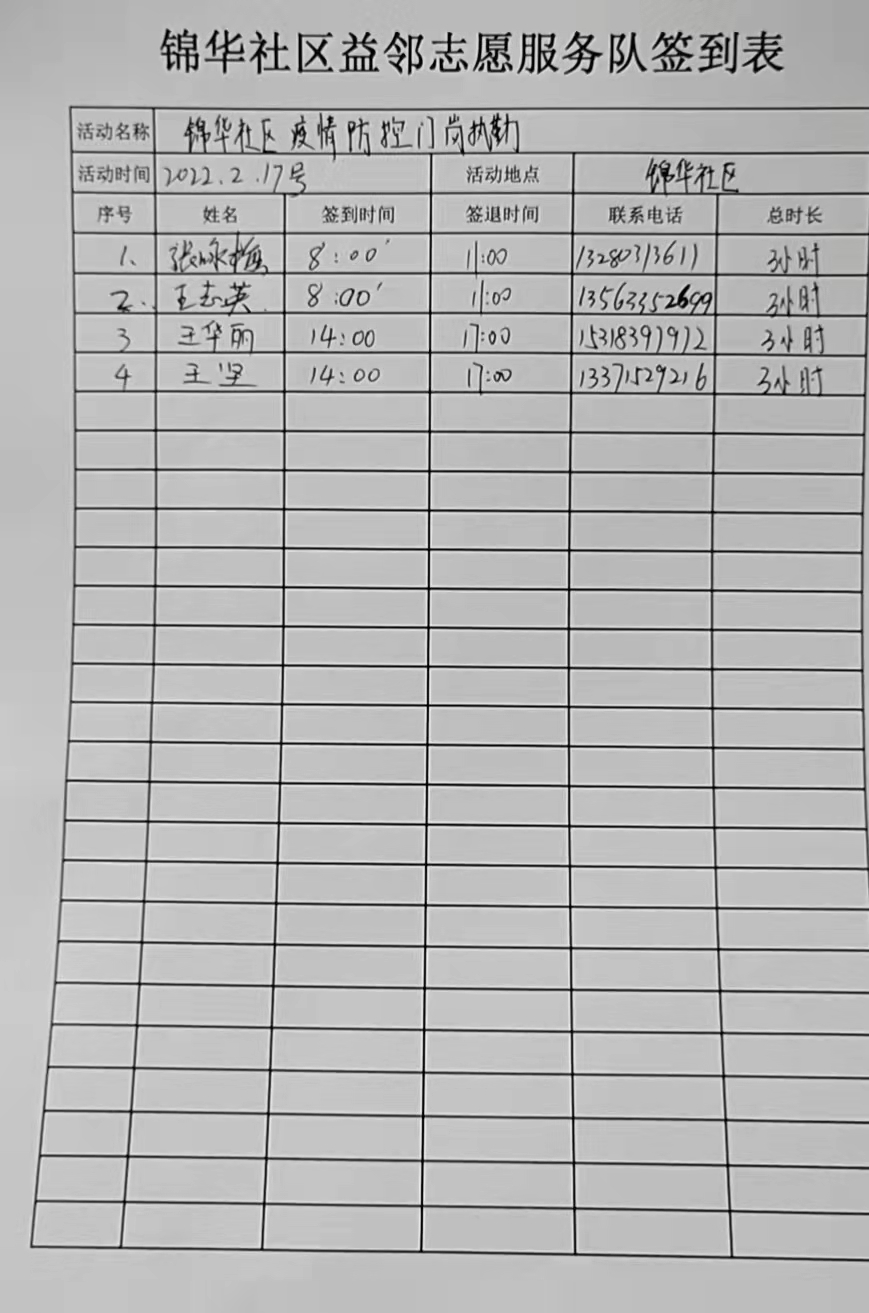 锦华社区益邻志愿服务队签到表
活动名称 锦华社区疫情防控门岗执勤
活动时间 2022.2.17号 活动地点 锦华社区
序号 姓名 签到时间 签退时间 联系电话 总时长
1、 张咏梅 8:00' 11:00 13280313611 3小时
2. 王志英 8:00' 11:00 13563352699 3小时
3 王华丽 14:00 17:00 15318397972 3小时
4 王坚 14:00 17:00 13371529216 3小时